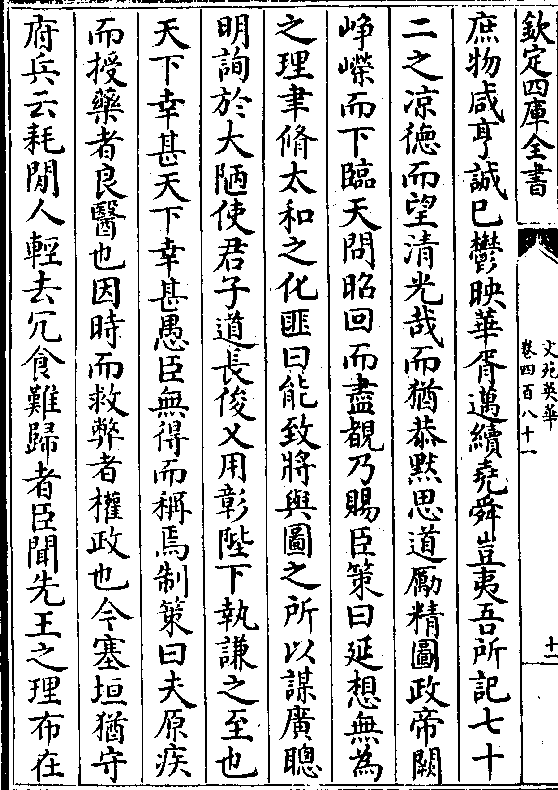 欽定四庫全書
文苑英華
卷四百八十一
十一
庶物咸亨誠已鬱映華胥邁續堯舜豈夷吾所記七十
二之凉德而望清光哉而猶恭黙思道勵精圖政帝闕
崢嶸而下臨天問昭回而盡覩乃賜臣策曰延想無為
之理聿脩太和之化匪曰能致將與圖之所以謀廣聰
明詢於大陋使君子道長俊乂用彰陛下執謙之至也
天下幸甚天下幸甚愚臣無得而稱焉制策曰夫原疾
而授藥者良醫也因時而救弊者權政也今塞垣猶守
府兵云耗閒人輕去冗食難歸者臣聞先王之理布在